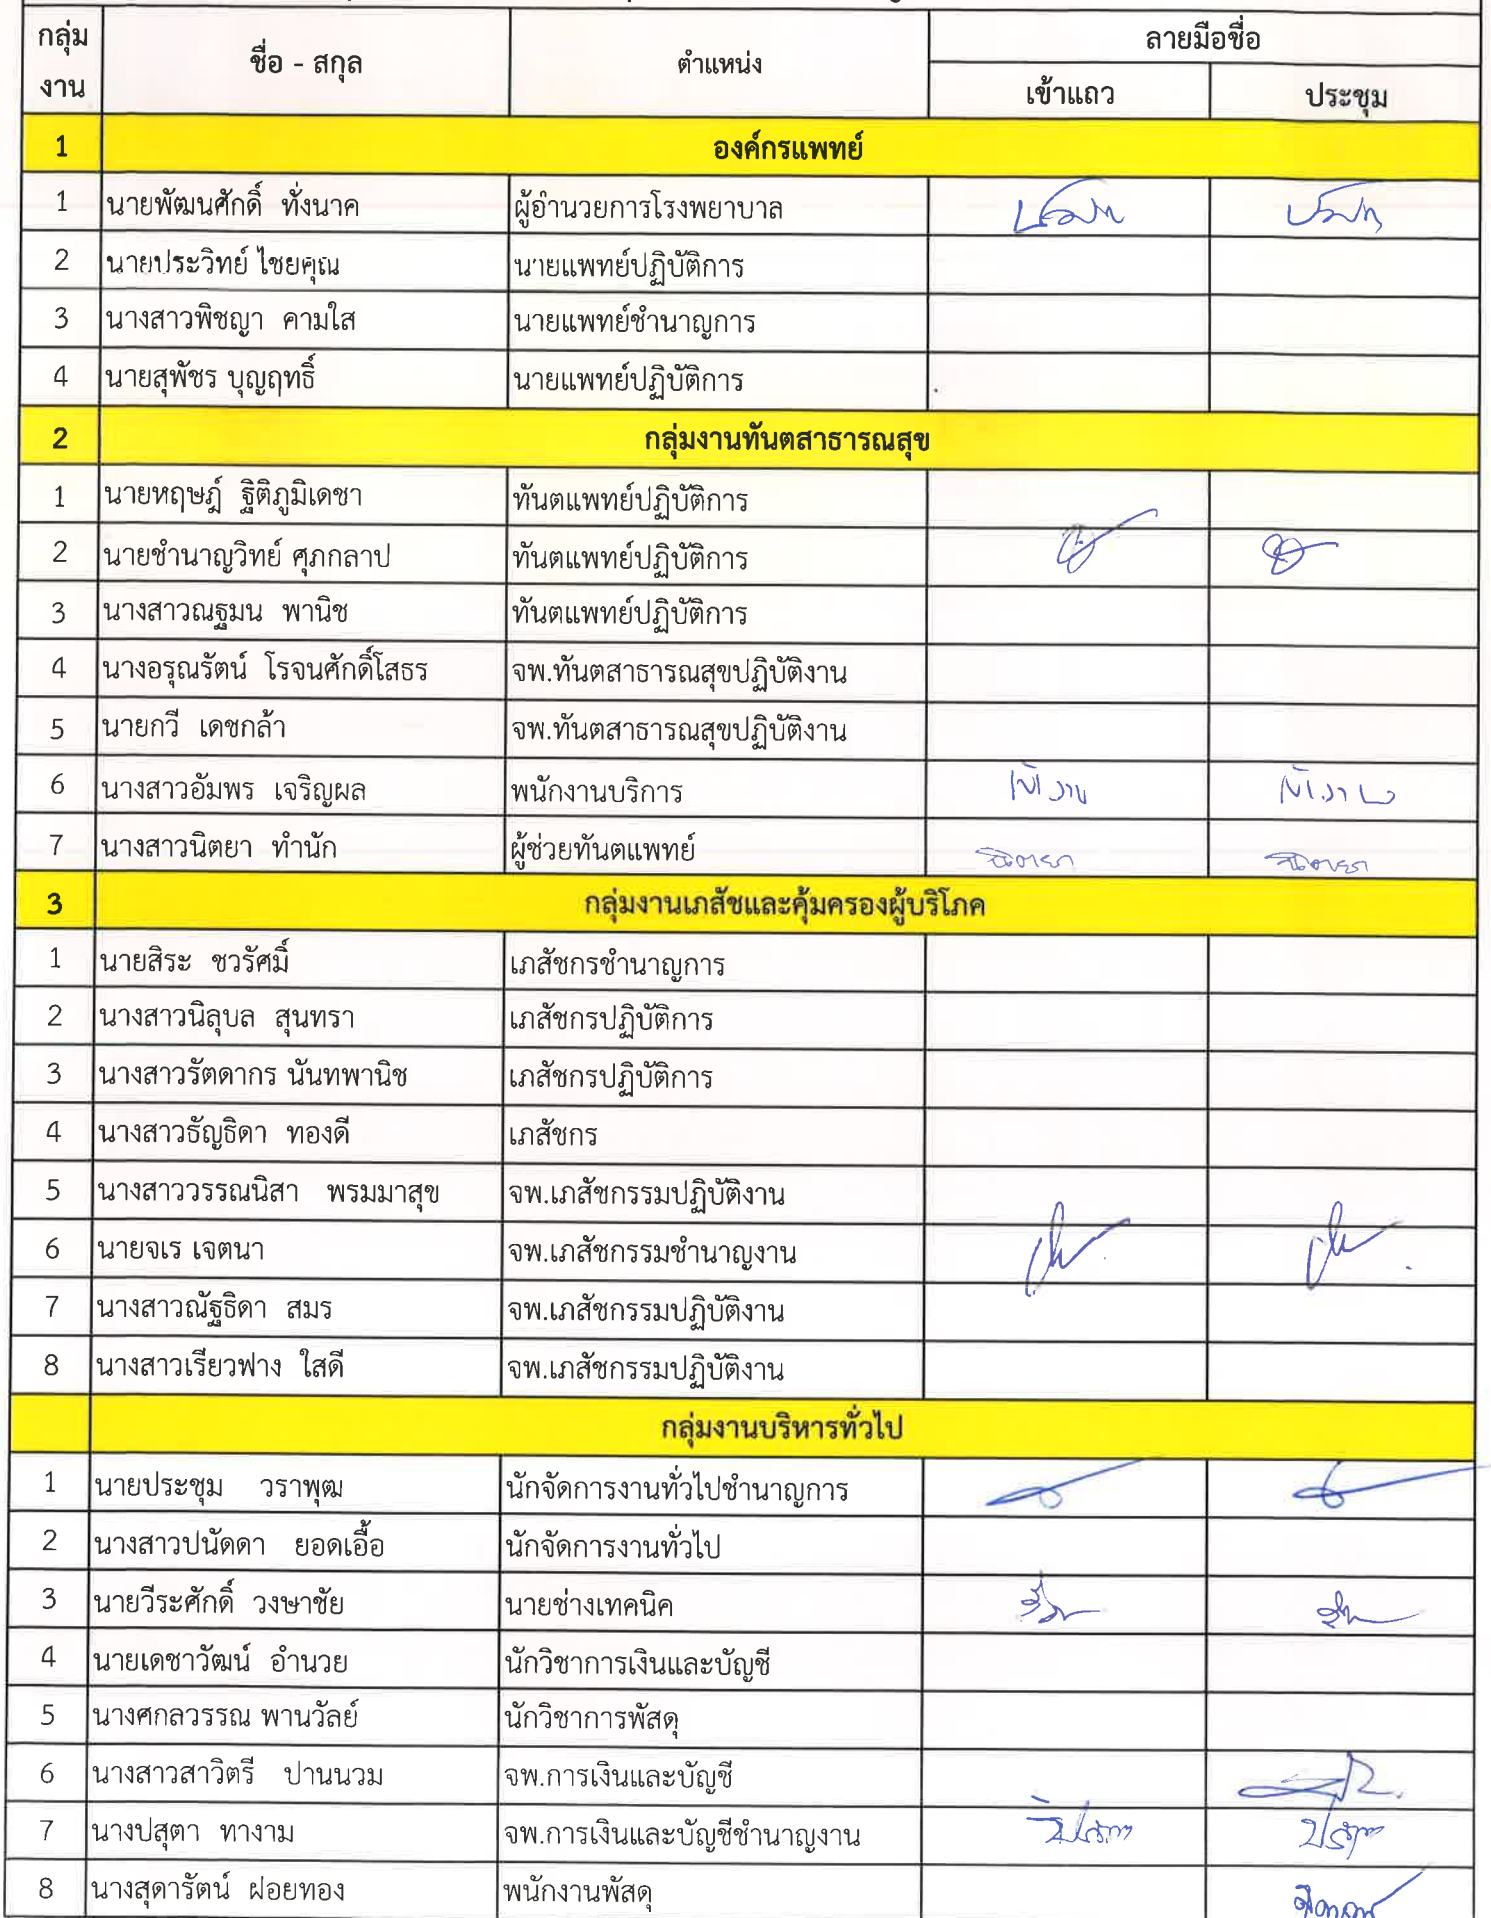 กลุ่มงาน ชื่อ - สกุล ตำแหน่ง ลายมือชื่อ
เข้าแถว ประชุม
1 องค์กรแพทย์
1 นายพัฒนศักดิ์ ทั่งนาค ผู้อำนวยการโรงพยาบาล
2 นายประวิทย์ ไชยคุณ นายแพทย์ปฏิบัติการ
3 นางสาวพิชญา คามใส นายแพทย์ชำนาญการ
4 นายสุพัชร บุญฤทธิ์ นายแพทย์ปฏิบัติการ
2 กลุ่มงานทันตสาธารณสุข
1 นายหฤษฎ์ ฐิติภูมิเดชา ทันตแพทย์ปฏิบัติการ
2 นายชำนาญวิทย์ ศุภกลาป ทันตแพทย์ปฏิบัติการ
3 นางสาวณฐมน พานิช ทันตแพทย์ปฏิบัติการ
4 นางอรุณรัตน์ โรจนศักดิ์โสธร จพ.ทันตสาธารณสุขปฏิบัติงาน
5 นายกวี เดชกล้า จพ.ทันตสาธารณสุขปฏิบัติงาน
6 นางสาวอัมพร เจริญผล พนักงานบริการ
7 นางสาวนิตยา ทำนัก ผู้ช่วยทันตแพทย์
3 กลุ่มงานเภสัชและคุ้มครองผู้บริโภค
1 นายสิระ ชวรัศมิ์ เภสัชกรชำนาญการ
2 นางสาวนิลุบล สุนทรา เภสัชกรปฏิบัติการ
3 นางสาวรัตดากร นันทพานิช เภสัชกรปฏิบัติการ
4 นางสาวธัญธิดา ทองดี เภสัชกร
5 นางสาววรรณนิสา พรมมาสุข จพ.เภสัชกรรมปฏิบัติงาน
6 นายจเร เจตนา จพ.เภสัชกรรมชำนาญงาน
7 นางสาวณัฐธิดา สมร จพ.เภสัชกรรมปฏิบัติงาน
8 นางสาวเรียวฟาง ใสดี จพ.เภสัชกรรมปฏิบัติงาน
กลุ่มงานบริหารทั่วไป
1 นายประชุม วราพุฒ นักจัดการงานทั่วไปชำนาญการ
2 นางสาวปนัดดา ยอดเอื้อ นักจัดการงานทั่วไป
3 นายวีระศักดิ์ วงษาชัย นายช่างเทคนิค
4 นายเดชาวัฒน์ อำนวย นักวิชาการเงินและบัญชี
5 นางศกลวรรณ พานวัลย์ นักวิชาการพัสดุ
6 นางสาวสาวิตรี ปานนวม จพ.การเงินและบัญชี
7 นางปสุตา ทางาม จพ.การเงินและบัญชีชำนาญงาน
8 นางสุดารัตน์ ฝอยทอง พนักงานพัสดุ